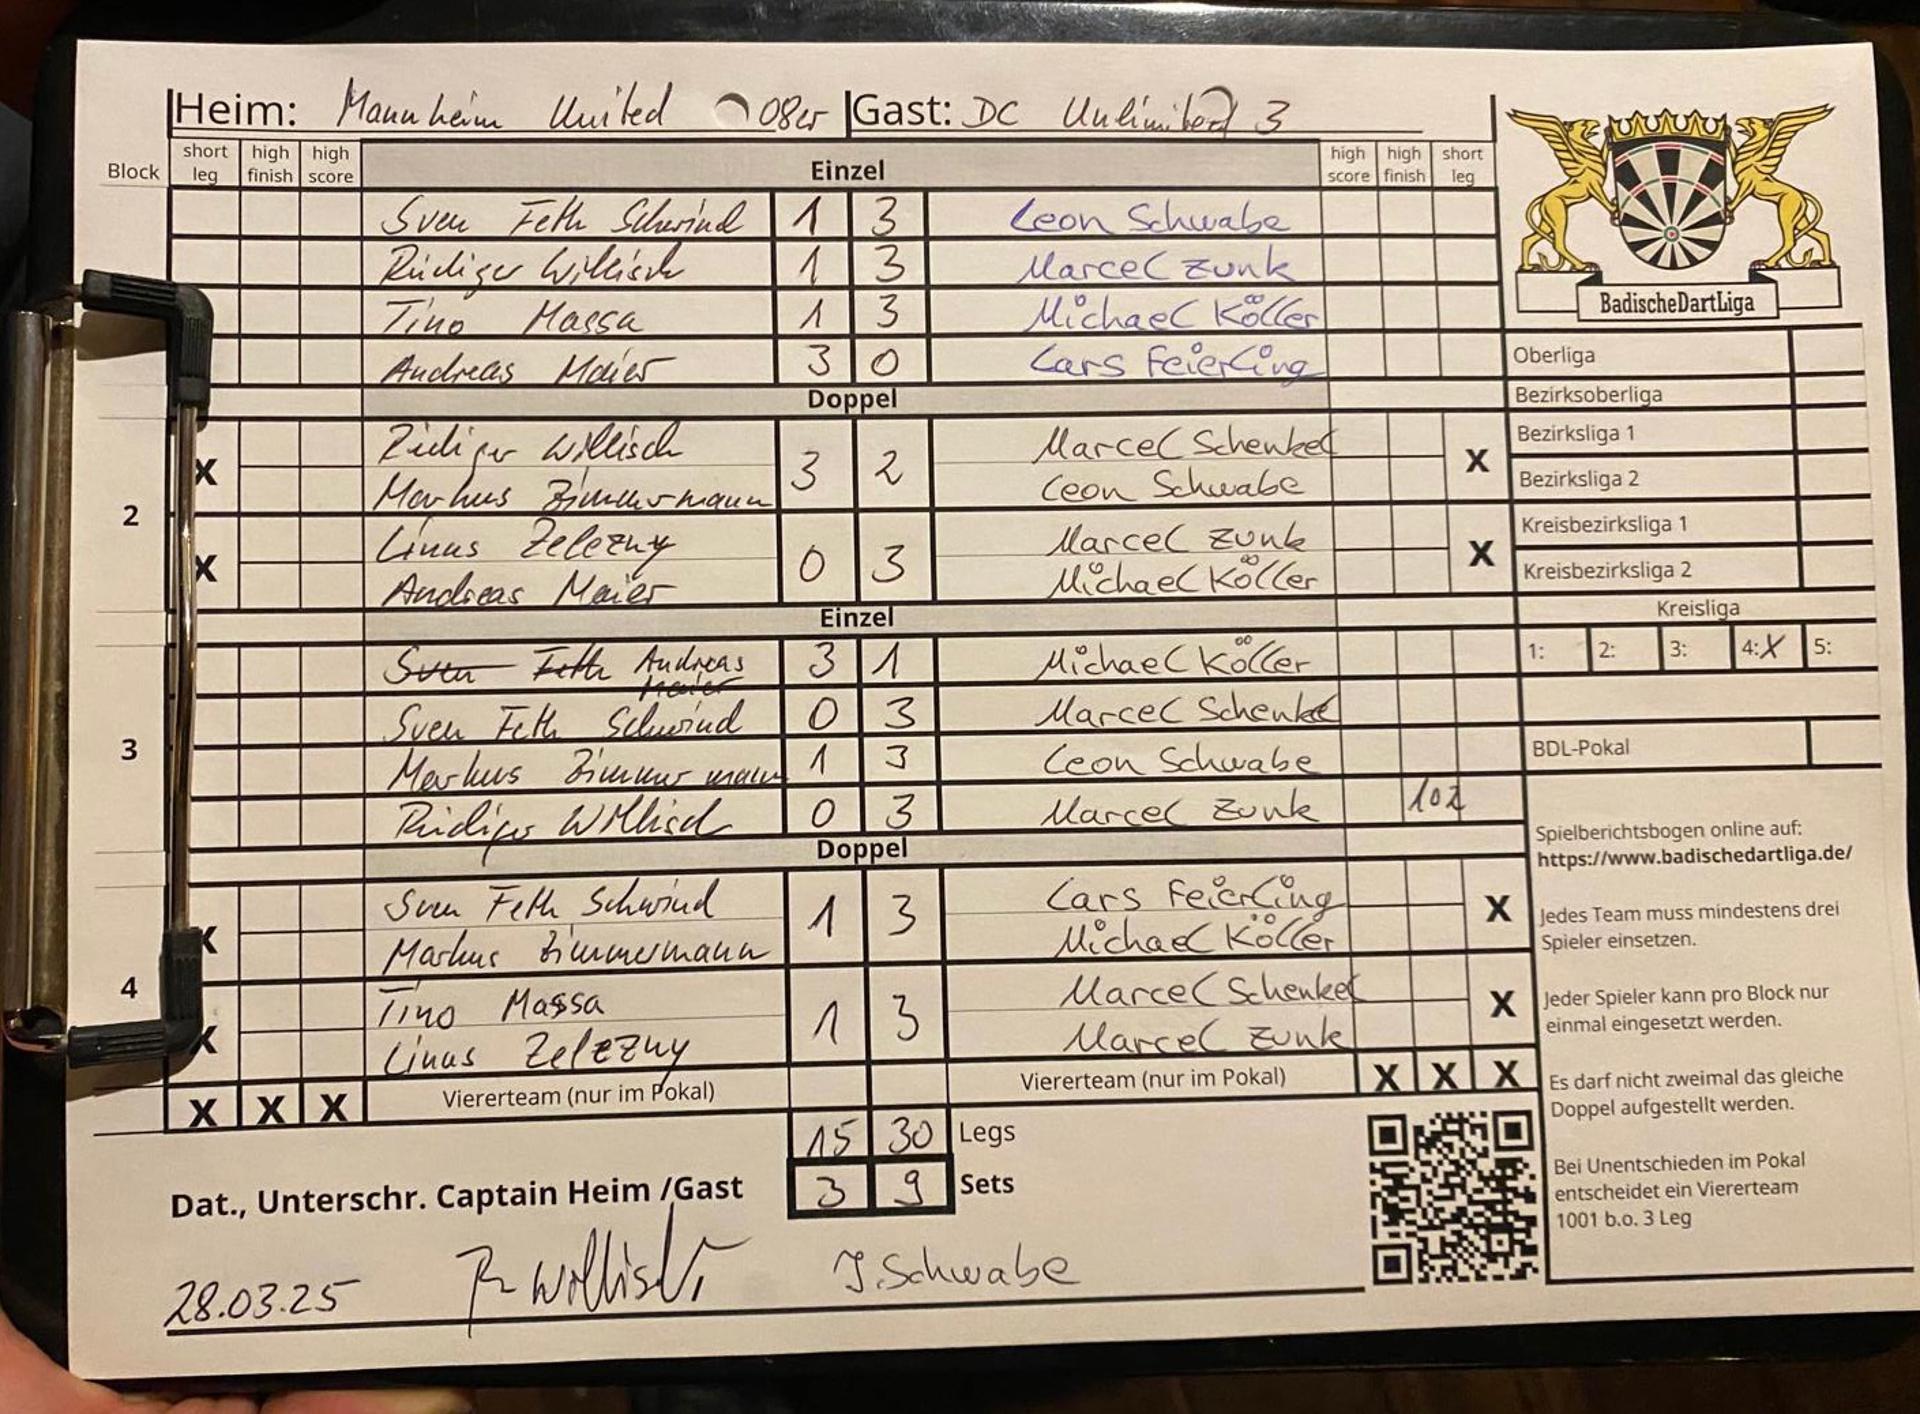 Heim: Mannheim United 08er Gast: DC Unlimited 3
Block short leg high finish high score Einzel high score high finish short leg
Sven Feth Schwind 1 3 Leon Schwabe
Rüdiger Willisch 1 3 Marcel Zunk
Tino Massa 1 3 Michael Köller
Andreas Maier 3 0 Lars Feierling
Doppel
2
X Rüdiger Willisch 3 2 Marcel Schenkel X
Markus Zimmermann Leon Schwabe
X Linus Zelezny 0 3 Marcel Zunk X
Andreas Maier Michael Köller
Einzel
3
Sven Feth Andreas Maier 3 1 Michael Köller
Sven Feth Schwind 0 3 Marcel Schenkel
Markus Zimmermann 1 3 Leon Schwabe
Rüdiger Willisch 0 3 Marcel Zunk 102
Doppel
4
X Sven Feth Schwind 1 3 Lars Feierling X
Markus Zimmermann Michael Köller
X Tino Massa 1 3 Marcel Schenkel X
Linus Zelezny Marcel Zunk
X X X Viererteam (nur im Pokal) Viererteam (nur im Pokal) X X X
15 30 Legs
3 9 Sets
Dat., Unterschr. Captain Heim /Gast
28.03.25 R Willisch J. Schwabe
BadischeDartLiga
Oberliga
Bezirksoberliga
Bezirksliga 1
Bezirksliga 2
Kreisbezirksliga 1
Kreisbezirksliga 2
Kreisliga
1: 2: 3: 4: X 5:
BDL-Pokal
Spielberichtsbogen online auf:
https://www.badischedartliga.de/
Jedes Team muss mindestens drei
Spieler einsetzen.
Jeder Spieler kann pro Block nur
einmal eingesetzt werden.
Es darf nicht zweimal das gleiche
Doppel aufgestellt werden.
Bei Unentschieden im Pokal
entscheidet ein Viererteam
1001 b.o. 3 Leg